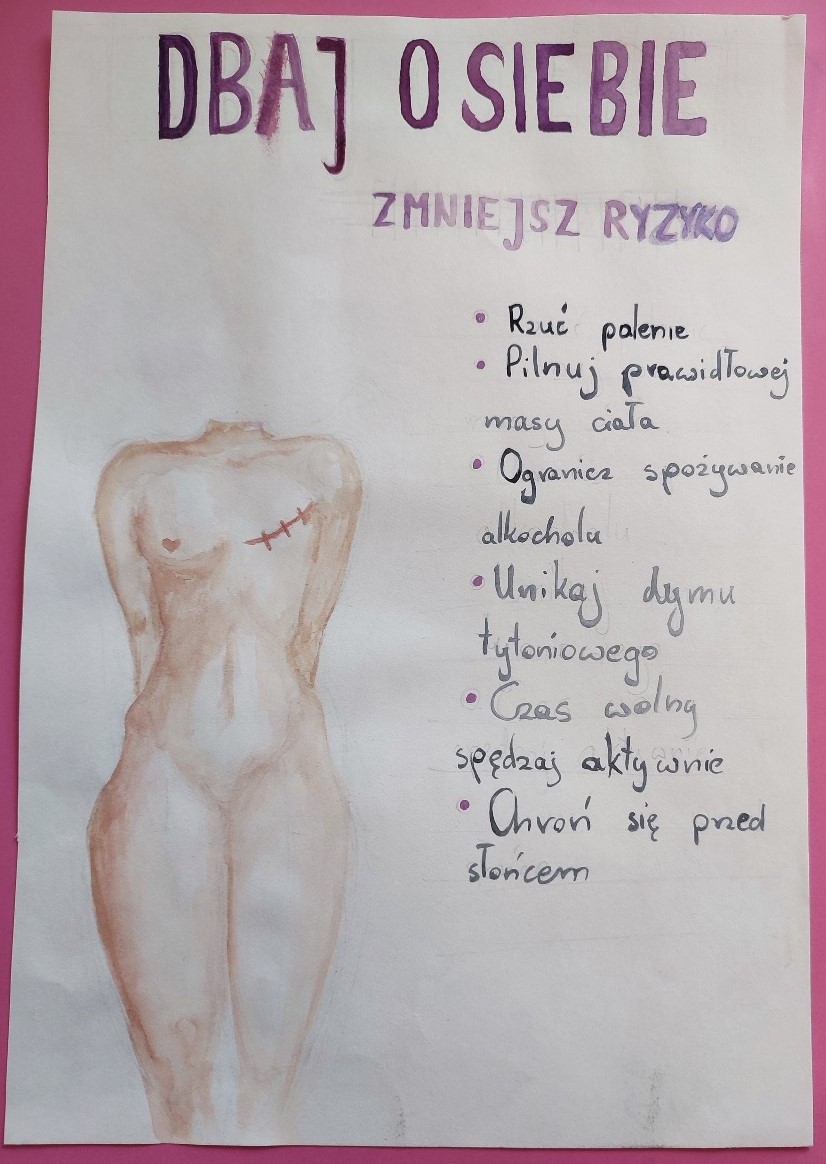 DBAJ O SIEBIE
ZMNIEJSZ RYZYKO
• Rzuć palenie
• Pilnuj prawidłowej
masy ciała
• Ogranicz spożywanie
alkocholu
• Unikaj dymu
tytoniowego
• Czas wolny
spędzaj aktywnie
• Chroń się przed
słońcem